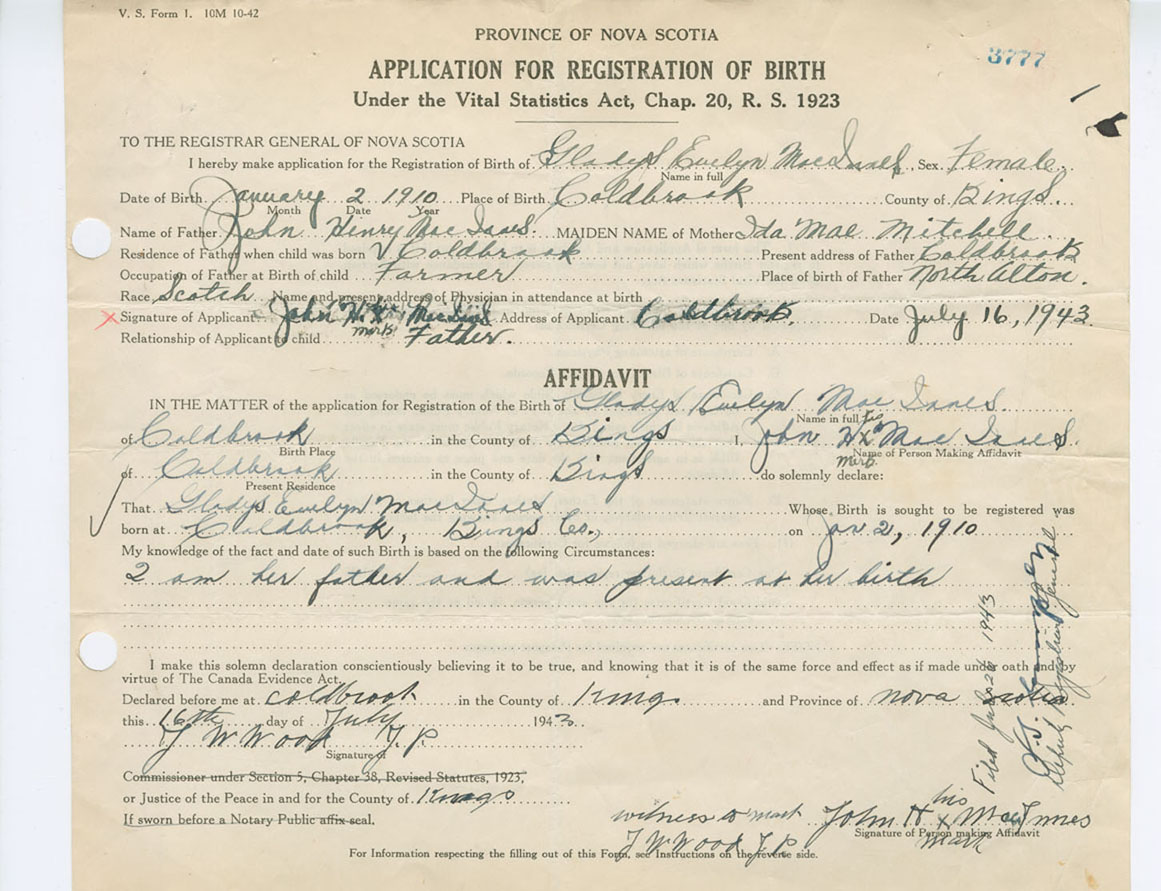 V. S. Form 1. 10M 10-42
PROVINCE OF NOVA SCOTIA
3777
APPLICATION FOR REGISTRATION OF BIRTH
Under the Vital Statistics Act, Chap. 20, R. S. 1923
TO THE REGISTRAR GENERAL OF NOVA SCOTIA
I hereby make application for the Registration of Birth of Gladys Evelyn MacInnes, Sex Female
Name in full
Date of Birth January 2 1910 Place of Birth Coldbrook County of Kings
Month Date Year
Name of Father John Henry MacInnes MAIDEN NAME of Mother Ida Mae Mitchell
Residence of Father when child was born Coldbrook Present address of Father Coldbrook
Occupation of Father at Birth of child Farmer Place of birth of Father North Alton
Race Scotch Name and present address of Physician in attendance at birth
X Signature of Applicant John H. his x MacInnes Address of Applicant Coldbrook Date July 16, 1943
mark
Relationship of Applicant to child Father.
AFFIDAVIT
IN THE MATTER of the application for Registration of the Birth of Gladys Evelyn MacInnes
Name in full
of Coldbrook in the County of Kings I, John H his x MacInnes
Birth Place mark Name of Person Making Affidavit
of Coldbrook in the County of Kings do solemnly declare:
Present Residence
That Gladys Evelyn MacInnes Whose Birth is sought to be registered was
born at Coldbrook, Kings Co., on Jan 2, 1910
My knowledge of the fact and date of such Birth is based on the following Circumstances:
I am her father and was present at her birth
I make this solemn declaration conscientiously believing it to be true, and knowing that it is of the same force and effect as if made under oath and by
virtue of The Canada Evidence Act.
Declared before me at Coldbrook in the County of Kings and Province of Nova Scotia
this 16th day of July 1943.
J W Wood J.P.
Signature of
Commissioner under Section 5, Chapter 38, Revised Statutes, 1923,
or Justice of the Peace in and for the County of Kings
If sworn before a Notary Public affix seal.
witness to mark John H his x MacInnes mark
J W Wood J P Signature of Person making Affidavit
For Information respecting the filling out of this Form, see Instructions on the reverse side.
Filed July 24 1943
Deputy Registrar General